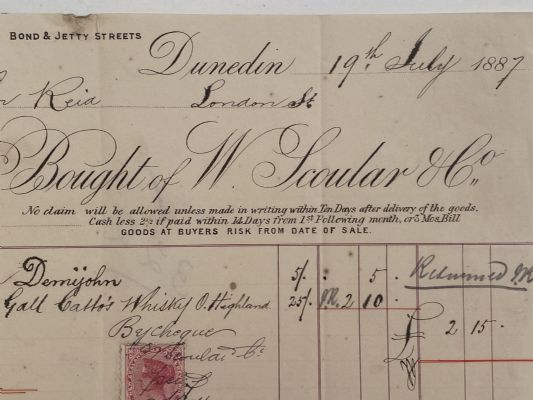 BOND & JETTY STREETS
Dunedin 19th July 1887
Reid London St
Bought of W. Scoular & Co.
No claim will be allowed unless made in writing within Ten Days after delivery of the goods.
Cash less 2½ if paid within 14 Days from 1st Following month, or 3 Mos. Bill
GOODS AT BUYERS RISK FROM DATE OF SALE.
Demijohn 5/- 5 Returned
Gall Catto's Whisky O. Highland 25/- 2 10
£ 2 15
By cheque
Scoular Co